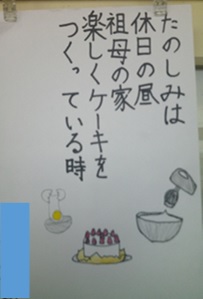 たのしみは
休日の昼
祖母の家
楽しくケーキを
つくっている時